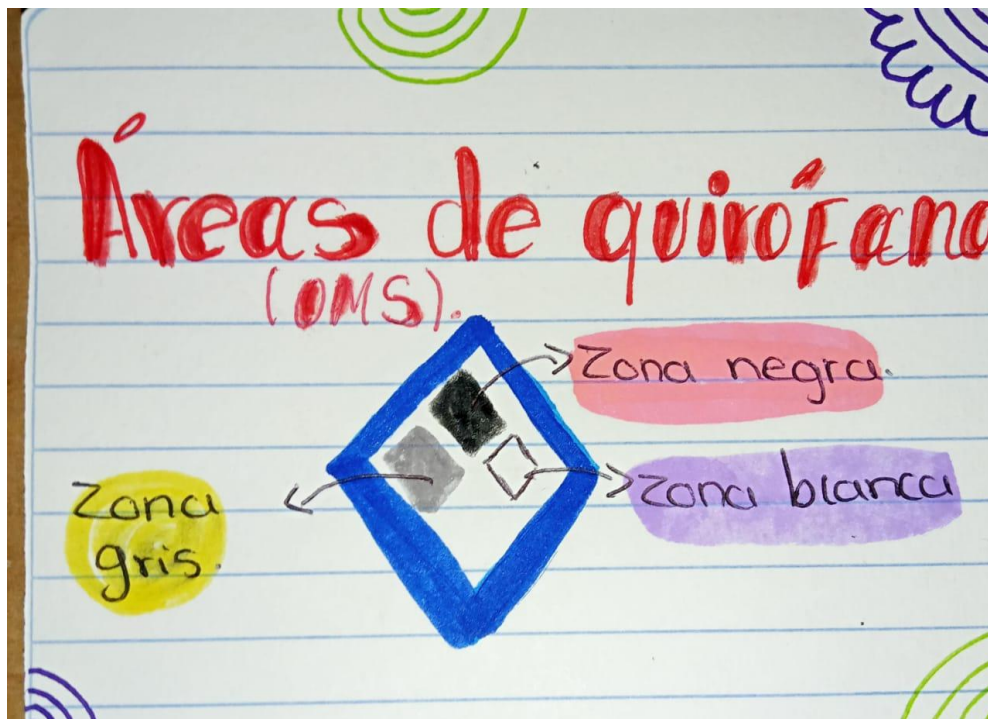 Áreas de quirófano
(OMS).
Zona negra.
Zona blanca
Zona
gris.